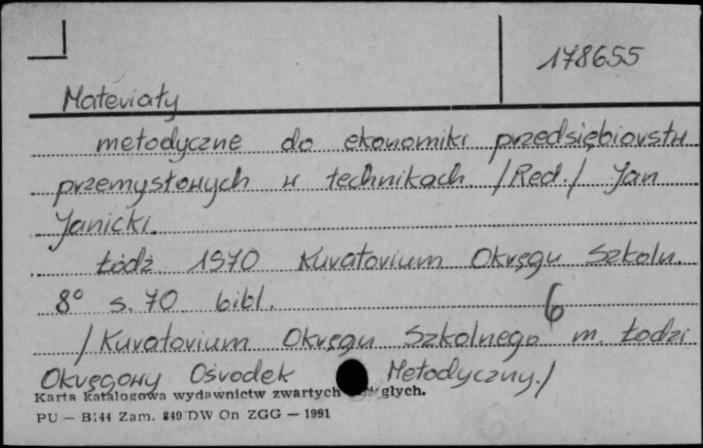 178655
Materiały
metodyczne do ekonomiki przedsiębiorstw
przemysłowych w technikach /Red./ Jan
Janicki.
Łódź 1970 Kuratorium Okręgu Szkoln.
8° s. 70 bibl.
/Kuratorium Okręgu Szkolnego m. Łodzi
Okręgowy Ośrodek Metodyczny./
Karta katalogowa wydawnictw zwartych głych.
PU — B/44 Zam. 849 DW On ZGG — 1991